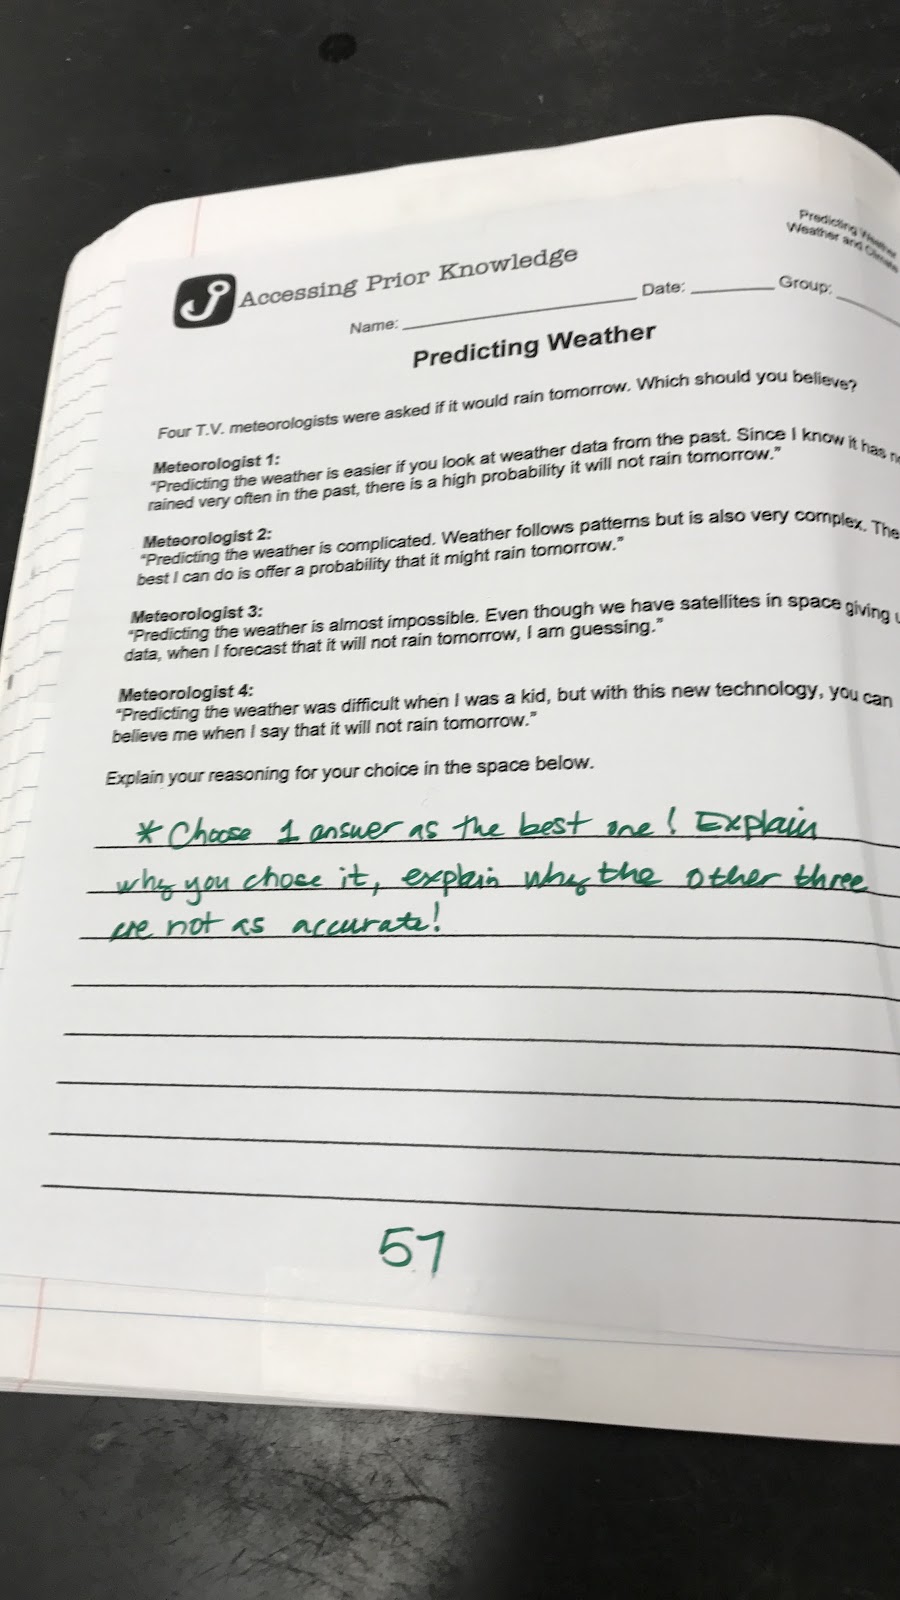 Predicting Weather
Weather and Climate
Accessing Prior Knowledge
Name: Date: Group:
Predicting Weather
Four T.V. meteorologists were asked if it would rain tomorrow. Which should you believe?
Meteorologist 1:
"Predicting the weather is easier if you look at weather data from the past. Since I know it has
rained very often in the past, there is a high probability it will not rain tomorrow."
Meteorologist 2:
"Predicting the weather is complicated. Weather follows patterns but is also very complex. The
best I can do is offer a probability that it might rain tomorrow."
Meteorologist 3:
"Predicting the weather is almost impossible. Even though we have satellites in space giving
data, when I forecast that it will not rain tomorrow, I am guessing."
Meteorologist 4:
"Predicting the weather was difficult when I was a kid, but with this new technology, you can
believe me when I say that it will not rain tomorrow."
Explain your reasoning for your choice in the space below.
* Choose 1 answer as the best one! Explain
why you chose it, explain why the other three
are not as accurate!
57